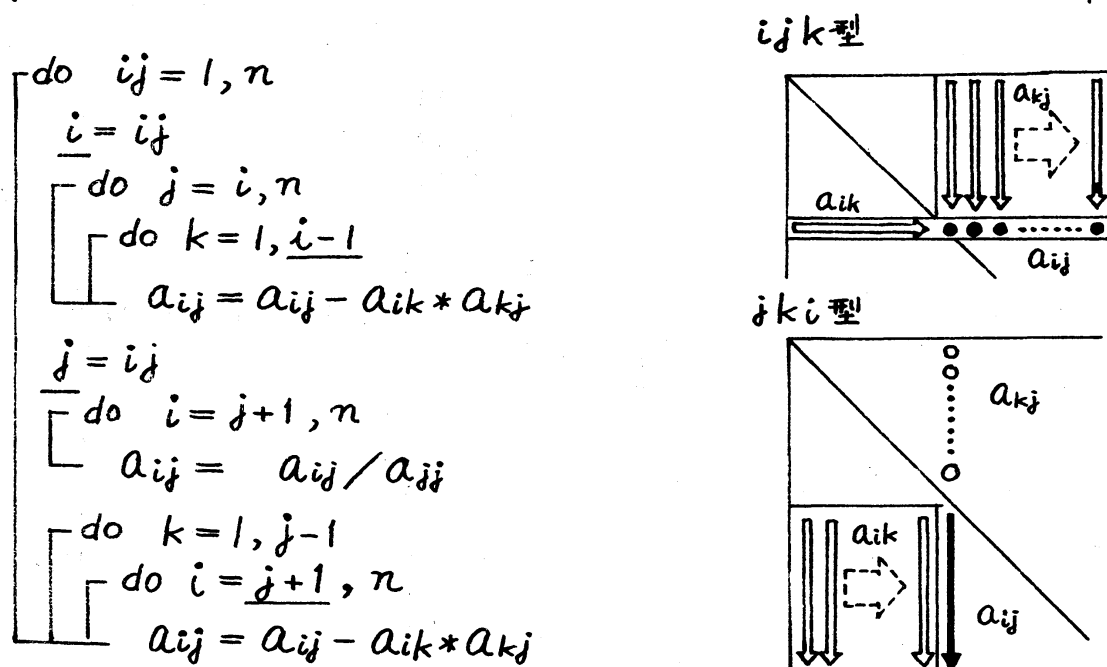 do ij = 1, n
i = ij
do j = i, n
do k = 1, i-1
aij = aij - aik * akj
j = ij
do i = j+1, n
aij = aij / ajj
do k = 1, j-1
do i = j+1, n
aij = aij - aik * akj
ijk型
akj
aik
aij
jki型
akj
aik
aij